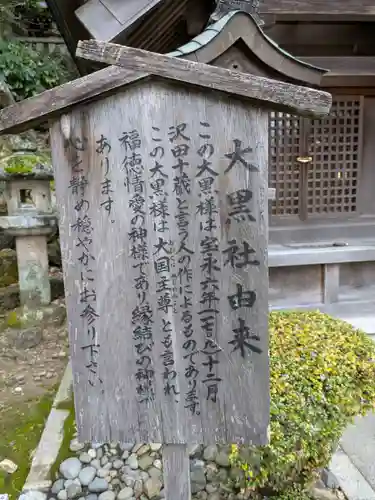 大黒社由来
この大黒様は宝永六年（一七〇九）十二月
沢田十蔵と言う人の作によるものであります。
この大黒様は大国主尊とも言われ
福徳情愛の神様であり縁結びの神様で
あります。
心を静め穏やかにお参り下さい。